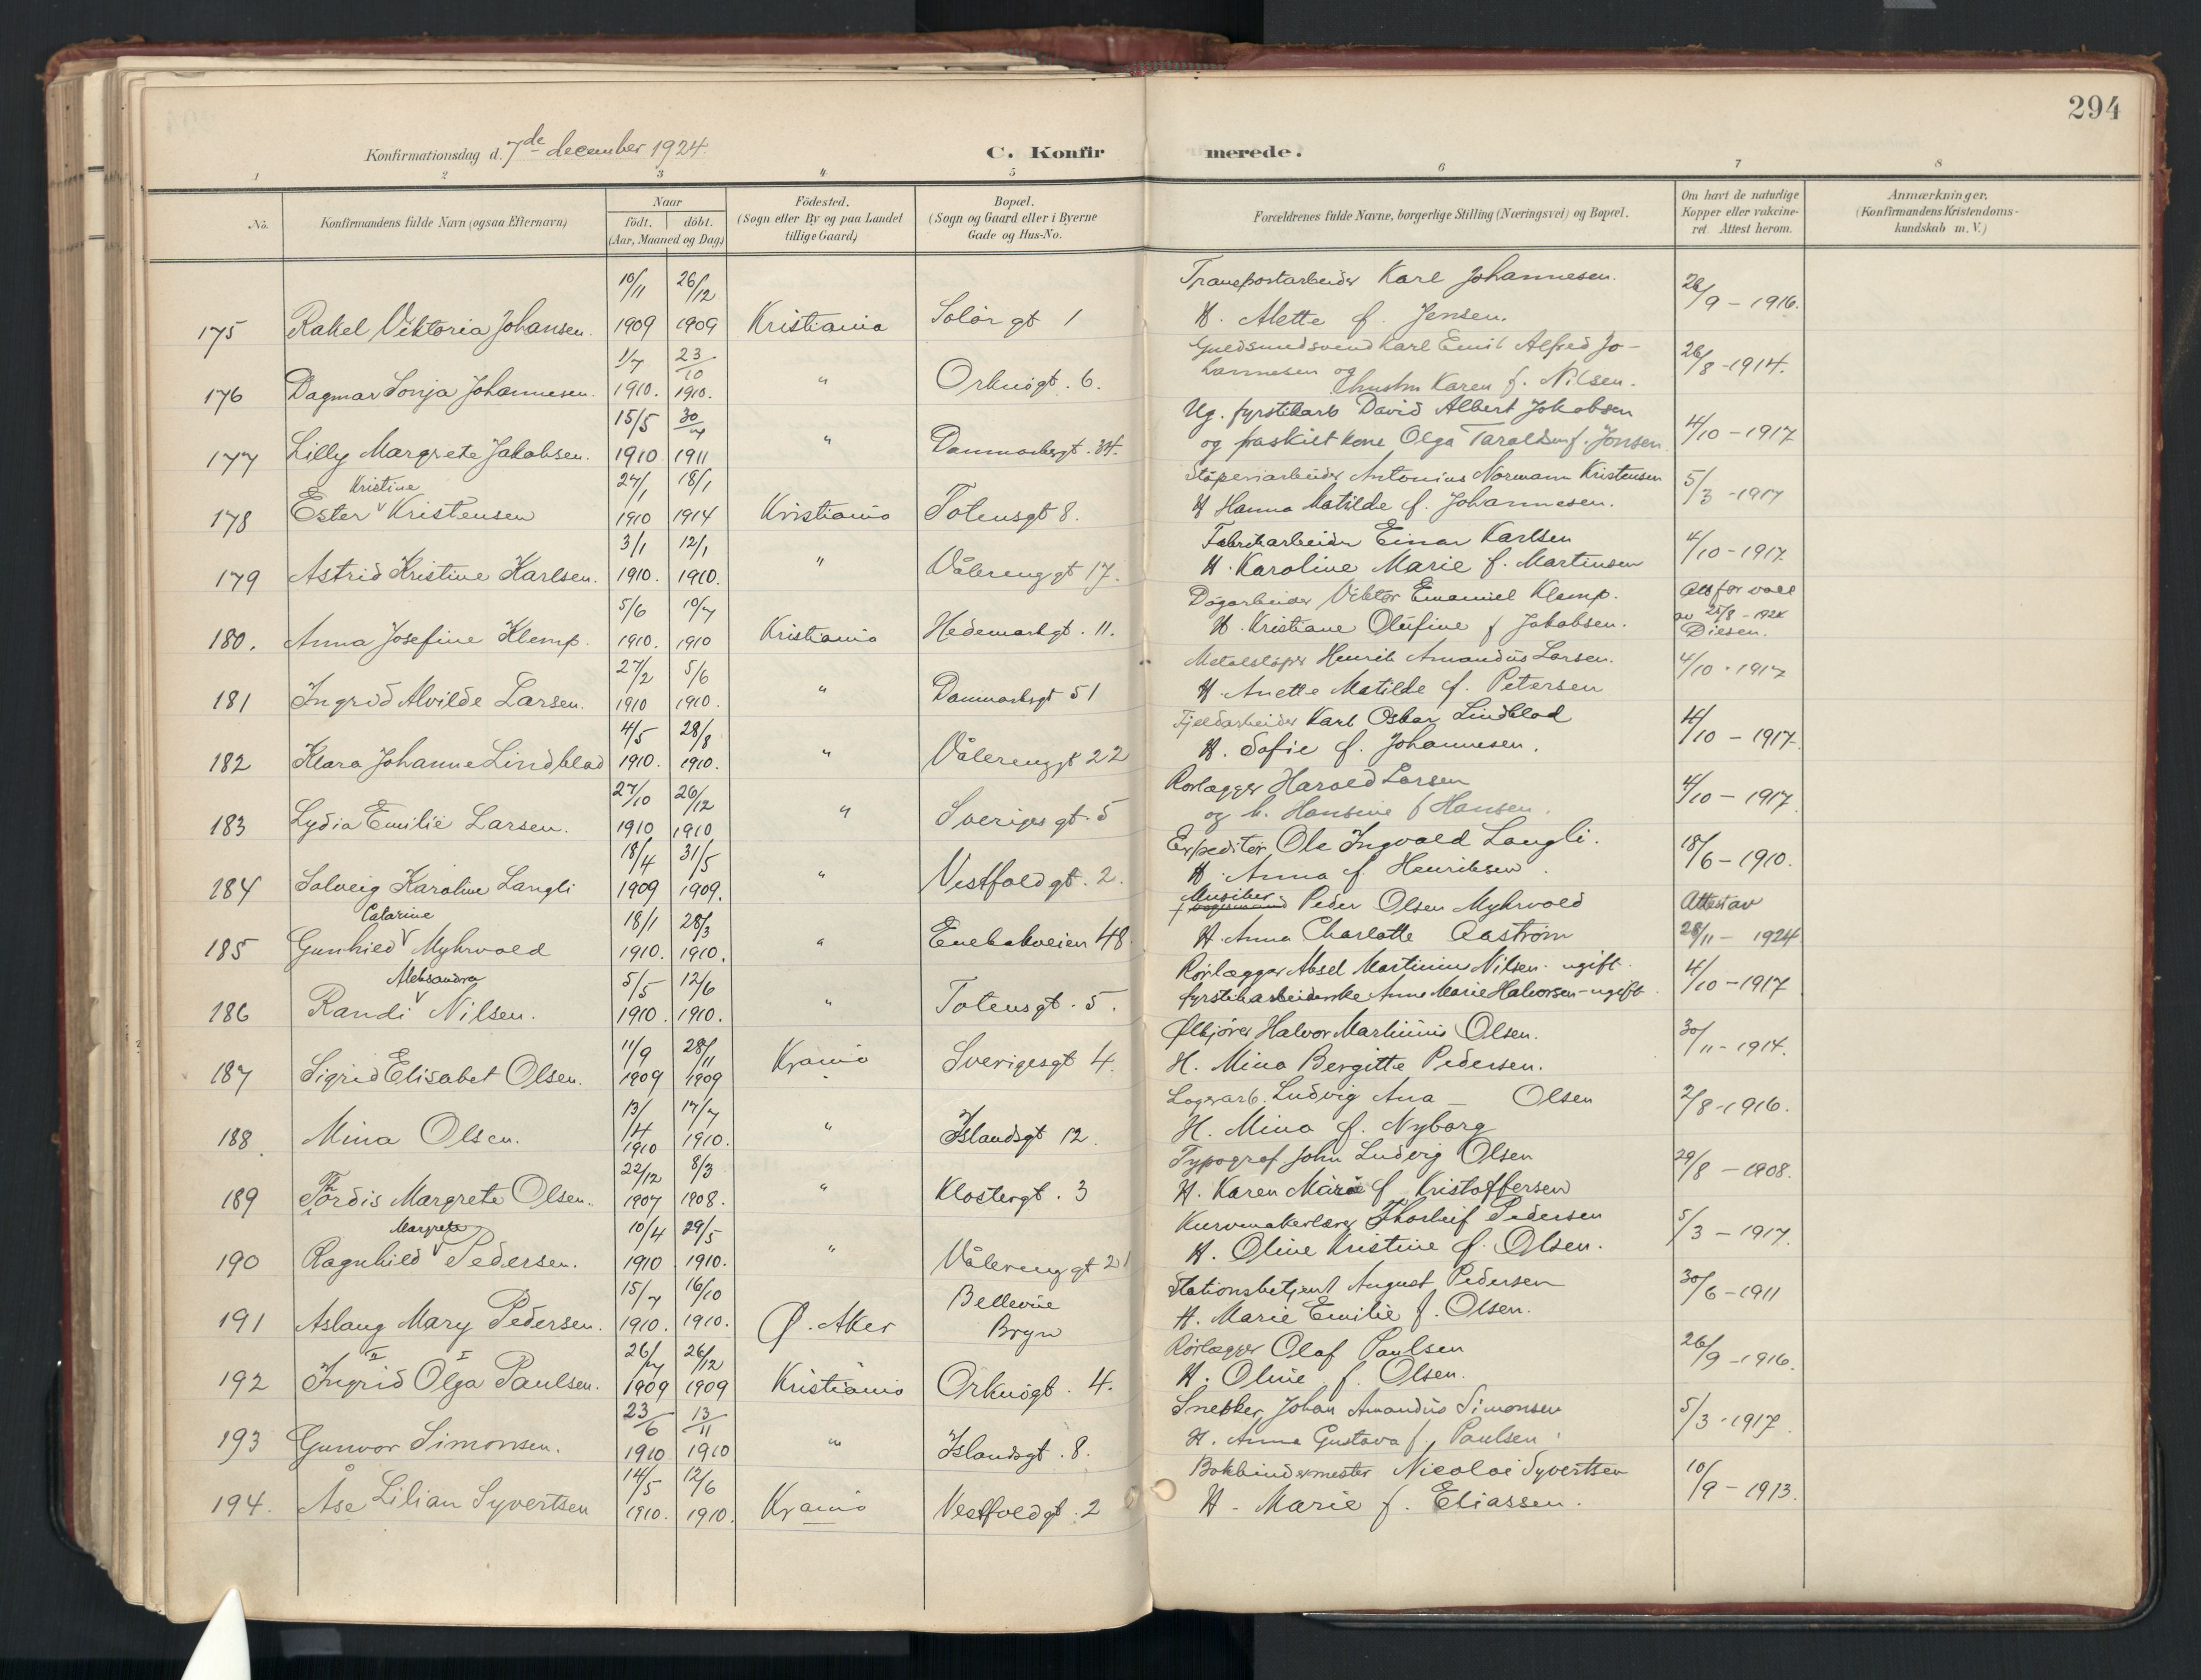 294
Konfirmationsdag d. 7de december 1924.
C. Konfirmerede.
1 2 3 4 5 6 7 8
No.
Konfirmandens fulde Navn (ogsaa Efternavn)
Naar
født. døbt.
(Aar, Maaned og Dag)
Födested.
(Sogn eller By og paa Landet
tillige Gaard)
Bopæl.
(Sogn og Gaard eller i Byerne
Gade og Hus-No.
Forældrenes fulde Navne, borgerlige Stilling (Næringsvei) og Bopæl.
Om havt de naturlige
Kopper eller vakcine-
ret. Attest herom.
Anmærkninger,
(Konfirmandens Kristendoms-
kundskab m. V.)
10/11 26/12 Transportarbeider Karl Johannesen.
175 Rakel Viktoria Johansen. 1909 1909 Kristiania Solør gt 1 H. Alette f. Jensen. 26/9 - 1916.
1/7 23/10 Guldsmedsvend Karl Emil Alfred Jo-
176 Dagmar Sonja Johannesen. 1910. 1910. " Orknøgt. 6. hannesen og hustru Karen f. Nilsen. 26/8 - 1914.
15/5 30/4 Ug. fyrstikarb David Albert Jakobsen
177 Lilly Margrete Jakobsen. 1910 1911 " Danmarksgt. 34. og fraskilt kone Olga Taraldsen f. Jonsen. 4/10 - 1917
Kristine 27/1 18/1 Støperiarbeider Antonius Normann Kristensen
178 Ester Kristensen 1910 1914 Kristiania Totensgt 8. H Hanna Matilde f. Johannesen. 5/3 - 1917
3/1 12/1 Fabrikarbeider Einar Karlsen
179 Astrid Kristine Karlsen. 1910. 1910. " Vålerenggt 17. H. Karoline Marie f. Martinsen 4/10 - 1917.
5/6 10/7 Døgarbeider Viktor Emanuel Klemp. Att for vacc
180. Anna Josefine Klemp. 1910. 1910 Kristiania Hedemarkgt. 11. H. Kristiane Olufine f Jakobsen. av 25/8 - 1924 Diesen.
27/2 5/6 Metalstøper Henrik Amandus Larsen.
181 Ingrid Alvilde Larsen. 1910 1910. " Danmarksgt 51 H. Anette Matilde f. Petersen 4/10 - 1917
4/5 28/8 Fjeldarbeider Karl Oskar Lindblad
182 Klara Johanne Lindblad 1910. 1910. " Vålerenggt 22 H. Sofie f. Johannesen. 4/10 - 1917.
27/10 26/12 Rørlægger Harald Larsen
183 Lydia Emilie Larsen. 1910 1910 " Sveriges gt. 5 og h. Hansine f Hansen. 4/10 - 1917.
18/4 31/5 Expeditør Ole Ingvald Langli.
184 Solveig Karoline Langli 1909 1909. " Vestfoldgt. 2. H. Anna f Henriksen. 18/6 - 1910.
Catarine 18/1 28/3 Musiker Peder Olsen Myhrvold Attest av
185 Gunhild Myhrvold 1910. 1910. " Enebakveien 48 H. Anna Charlotte Aastrøm 28/11 - 1924
Aleksandra 5/5 12/6 Rørlægger Aksel Martinius Nilsen - ugift.
186 Randi Nilsen. 1910. 1910. " Totensgt. 5. fyrstikarbeiderske Anne Marie Halvorsen - ugift. 4/10 - 1917
11/9 28/11 Ølkjører Halvor Martinius Olsen.
187 Sigrid Elisabet Olsen. 1909 1909 Krania Sverigesgt 4. H. Mina Bergitte Pedersen. 30/11 - 1914.
13/4 17/7 Lagerarb. Ludvig Ana - Olsen
188. Mina Olsen. 1910 1910. " Islandsgt 12. H. Mina f. Nyborg 2/8 - 1916.
22/12 8/3 Typograf John Ludvig Olsen
189 Thordis Margrete Olsen. 1907 1908. " Klostergt. 3 H. Karen Marie f. Kristoffersen 29/8 - 1908.
Margrete 10/4 29/5 Kurvmakerlærer Thorleif Pedersen
190 Ragnhild Pedersen. 1910 1910. " Vålerenggt 21 H. Oline Kristine f. Olsen. 5/3 - 1917.
15/7 16/10 Bellevue Stationsbetjent August Pedersen
191 Aslaug Mary Pedersen. 1910. 1910. Ø. Aker Bryn H. Marie Emilie f. Olsen. 30/6 - 1911
II I 26/7 26/12 Rørlægger Olaf Paulsen
192 Ingrid Olga Paulsen. 1909 1909 Kristiania Orknøgt. 4. H. Oline f. Olsen. 26/9 - 1916.
23/6 13/11 Snekker Johan Amandus Simonsen
193 Gunvor Simonsen. 1910 1910 " Islandsgt. 8. H. Anna Gustava f. Paulsen. 5/3 - 1917.
14/5 12/6 Bokbindermester Nicolai Syvertsen
194. Åse Lilian Syvertsen 1910. 1910. Krania Vestfoldgt. 2 H. Marie f. Eliassen. 10/9 - 1913.